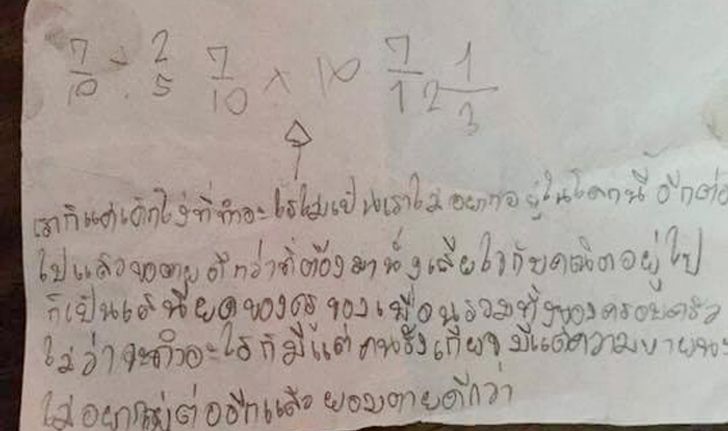 7/10 ÷ 2/5 7/10 × 10 7/1 2 1/3
เราก็แค่เด็กโง่ที่ทำอะไรไม่เป็นเราไม่อยากอยู่ในโลกนี้ อีกต่อ
ไปแล้วขอตายดีกว่าที่ต้องมานั่งเสียใจกับคณิตอยู่ไป
ก็เป็นเสนียดของครูของเพื่อนรวมทั้งของครอบครัว
ไม่ว่าจะทำอะไรก็มีแต่คนรังเกียจมีแต่ความหายนะ
ไม่อยากอยู่ต่ออีกแล้วยอมตายดีกว่า